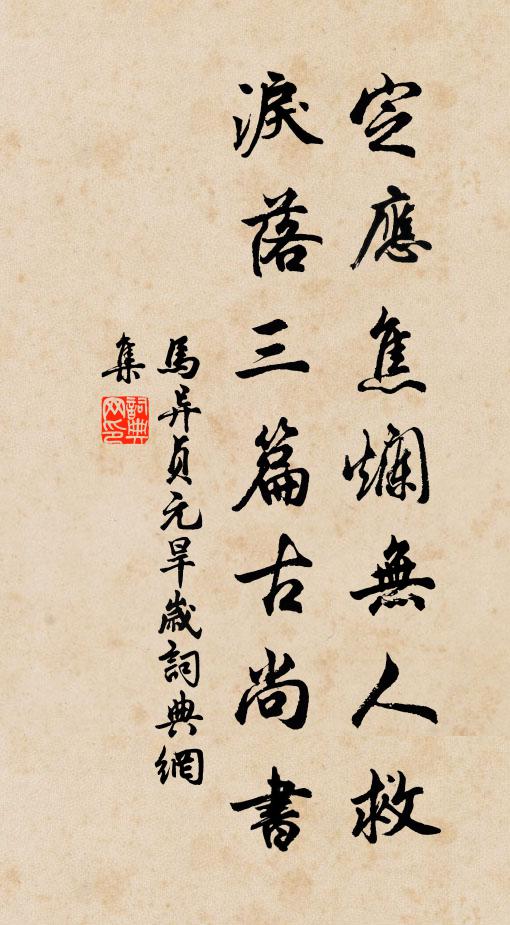 定應焦爛無人救
淚落三篇古尚書
馬异貞元旱歲詞典網
集
詞典網印